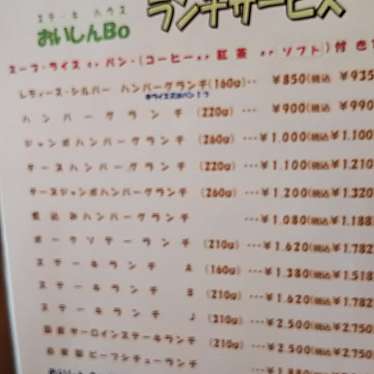 ステーキ ハウス
おいしんBo
ランチサービス
スープ・ライス or パン・(コーヒー or 紅茶 or ソフト)付き
レディース・シルバー ハンバーグランチ(160g)‥ ¥850(税込 ¥935
ハンバーグランチ (220g) ‥‥¥900(税込 ¥990
ジャンボハンバーグランチ (260g)‥‥¥1.000(税込 ¥1.100
チーズハンバーグランチ (220g)‥‥¥1.100(税込 ¥1.210
チーズジャンボハンバーグランチ (260g)‥‥¥1.200(税込 ¥1.320
煮込みハンバーグランチ ‥‥¥1.080(税込 ¥1.188
ポークソテーランチ (210g)‥‥¥1.620(税込 ¥1.782
ステーキランチ A (160g)‥‥¥1.380(税込 ¥1.518
ステーキランチ B (210g)‥‥¥1.620(税込 ¥1.782
ステーキランチ J (210g)‥‥¥2.500(税込 ¥2.750
サーロインステーキランチ (210g)‥‥¥2.500(税込 ¥2.750
ビーフシチューランチ ‥‥¥1.880(税込
おいしん